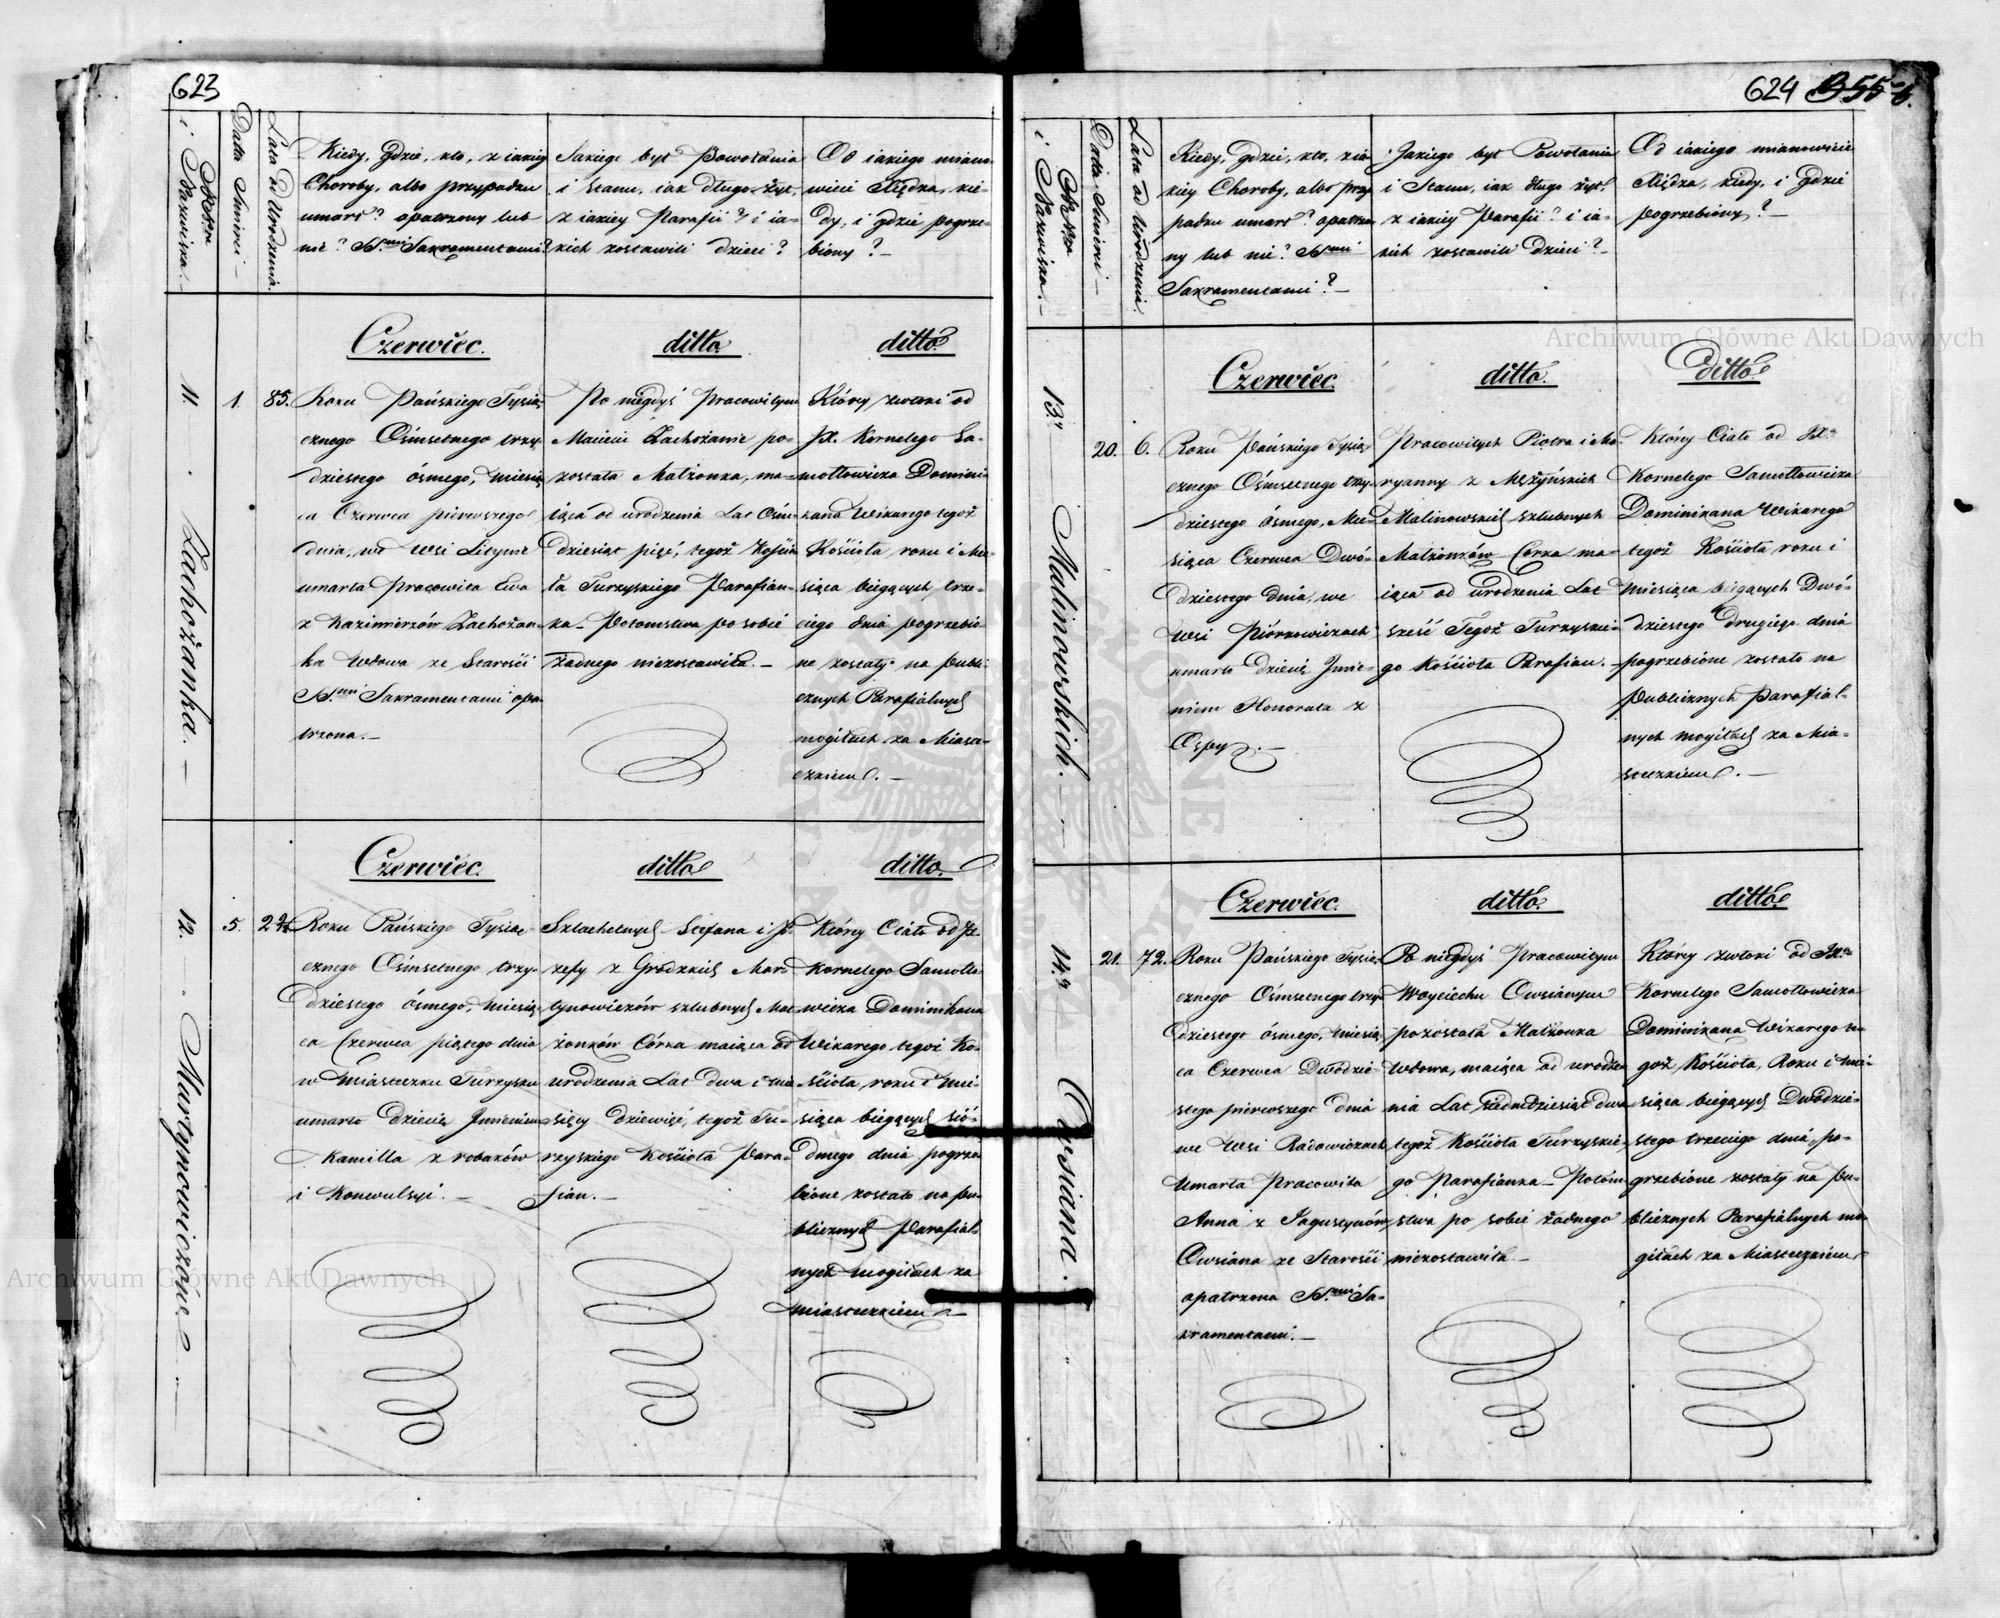 623
Numer
i Nazwiska.
Datta Smierci
Lata od Urodzenia.
Kiedy, gdzie, kto, z iakiey
Choroby, albo przypadku
umarł? opatrzony lub
nie? SS.mi Sakramentami?
Jakiego był Powołania
i stanu, iak długo żył,
z iakiey Parafii? i ia-
kich zostawili dzieci?
Od iakiego miano-
wicie Xiędza, kie-
dy, i gdzie pogrze-
biony?
Czerwiec.
ditto
ditto
11. Zachożanka.
1.
85.
Roku Pańskiego Tysią-
cznego Ośmsetnego trzy-
dziestego ósmego, miesią-
ca Czerwca pierwszego
dnia, we wsi Litynie
umarła Pracowita Ewa
z Kazimierzów Zachożan-
ka Wdowa ze Starości
SS.mi Sakramentami opa-
trzona.
Po niegdyś Pracowitym
Macieiu Zachożanie po-
została Małżonka, ma-
iąca od urodzenia Lat Ośm-
dziesiąt pięć, tegoż Kościo-
ła Turzyskiego Parafian-
ka. Potomstwa po sobie
żadnego niezostawiła.
Którey zwłoki od
JX. Kornelego Sa-
mottowicza Domini-
kana Wikarego tegoż
Kościoła, roku i Mie-
siąca bieżących, trze-
ciego dnia pogrzebio-
ne zostały na Publi-
cznych Parafialnych
mogiłach za Miaste-
czkiem.
Czerwiec.
ditto
ditto.
12. Martynowiczów.
5.
2 9/12
Roku Pańskiego Tysią-
cznego Ośmsetnego trzy-
dziestego ósmego, miesią-
ca Czerwca piątego dnia
w Miasteczku Turzysku
umarło Dziecię Jmieniem
Kamilla z robaków
i Konwulsyi.
Szlachetnych Stefana i Jó-
zefy z Grodzkich Mar-
tynowiczów szlubnych Mał-
żonków Córka maiąca od
urodzenia Lat dwa i mie-
sięcy dziewięć, tegoż Tu-
rzyskiego Kościoła Para-
fian.
Którey Ciało od JX.
Kornelego Samotto-
wicza Dominikana
Wikarego tegoż Ko-
ścioła, roku i mie-
siąca bieżących siód-
dmego dnia pogrze-
bione zostało na Pu-
blicznych Parafial-
nych mogiłach za
miasteczkiem
624 355
Numer
i Nazwiska.
Datta Smierci
Lata od Urodzenia.
Kiedy, gdzie, kto, z ia-
kiey Choroby, albo przy-
padku umarł? opatrzo-
ny lub nie? SS.mi
Sakramentami?
Jakiego był Powołania
i Stanu, iak długo żył?
z iakiey Parafii? i ia-
kich zostawili Dzieci?
Od iakiego mianowicie
Xiędza, kiedy, i gdzie
pogrzebiony?
Czerwiec.
ditto.
Ditto.
13. Malinowskich.
20.
6.
Roku Pańskiego Tysią-
cznego Ośmsetnego trzy-
dziestego ósmego, Mie-
siąca Czerwca Dwó-
dziestego dnia, we
Wsi Piórkowiczach
umarło Dziecię Jmie-
niem Honorata z
Ospy.
Pracowitych Piotra i Ma-
ryanny z Mężyńskich
Malinowskich szlubnych
Małżonków Corka ma-
iąca od urodzenia Lat
sześć Tegoż Turzyskie-
go Kościoła Parafian.
Którey Ciało od JX.
Kornelego Samottowicza
Dominikana Wikarego
tegoż Kościoła roku i
miesiąca bieżących Dwó-
dziestego drugiego dnia
pogrzebione zostało na
Publicznych Parafial-
nych mogiłach za Mia-
steczkiem.
Czerwiec.
ditto.
ditto.
14. Owsiana.
21.
72.
Roku Pańskiego Tysią-
cznego Ośmsetnego trzy-
dziestego ósmego, miesią-
ca Czerwca Dwódzie-
stego pierwszego dnia
we Wsi Radowiczach
Umarła Pracowita
Anna z Jagustynów
Owsiana ze Starości
opatrzona SS.mi Sa-
kramentami.
Po niegdyś Pracowitym
Woyciechu Owsianym
pozostała Małżonka
Wdowa, maiąca od urodze-
nia Lat siedmdziesiąt dwa
tegoż Kościoła Turzyskie-
go Parafianka. Potom-
stwa po sobie żadnego
niezostawiła.
Którey zwłoki od JX.
Kornelego Samottowicza
Dominikana Wikarego te-
goż Kościoła, Roku i mie-
siąca bieżących Dwódzie-
stego trzeciego dnia, po-
grzebione zostały na Pu-
blicznych Parafialnych mo-
giłach za Miasteczkiem
Archiwum Główne Akt Dawnych
Archiwum Główne Akt Dawnych